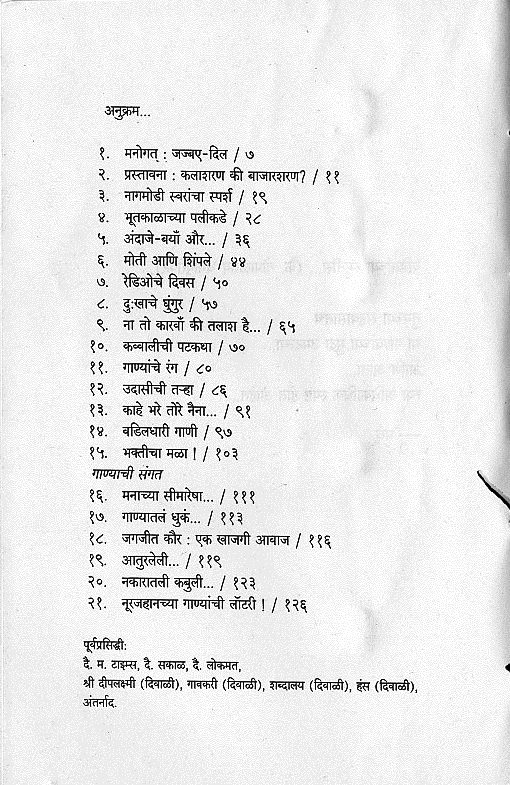 अनुक्रम...
१. मनोगत् : जज्बए-दिल / ७
२. प्रस्तावना : कलाशरण की बाजारशरण? / ११
३. नागमोडी स्वरांचा स्पर्श / १९
४. भूतकाळाच्या पलीकडे / २८
५. अंदाजे-बयाँ और... / ३६
६. मोती आणि शिंपले / ४४
७. रेडिओचे दिवस / ५०
८. दुःखाचे घुंगुर / ५७
९. ना तो कारवाँ की तलाश है... / ६५
१०. कव्वालीची पटकथा / ७०
११. गाण्यांचे रंग / ८०
१२. उदासीची तऱ्हा / ८६
१३. काहे भरे तोरे नैना... / ९१
१४. वडिलधारी गाणी / ९७
१५. भक्तीचा मळा ! / १०३
गाण्याची संगत
१६. मनाच्या सीमारेषा... / १११
१७. गाण्यातलं धुकं... / ११३
१८. जगजीत कौर : एक खाजगी आवाज / ११६
१९. आतुरलेली... / ११९
२०. नकारातली कबुली... / १२३
२१. नूरजहानच्या गाण्यांची लॉटरी ! / १२६
पूर्वप्रसिद्धीः
दै. म. टाइम्स, दै. सकाळ, दै. लोकमत,
श्री दीपलक्ष्मी (दिवाळी), गावकरी (दिवाळी), शब्दालय (दिवाळी), हंस (दिवाळी),
अंतर्नाद.